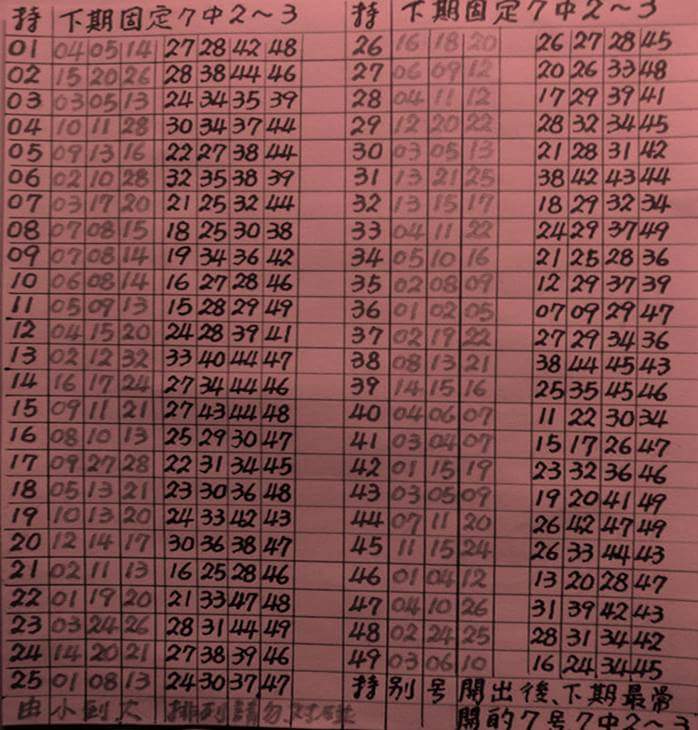 持 下期固定7中2~3
01 04 05 14 27 28 42 48
02 15 20 26 28 38 44 46
03 03 05 13 24 34 35 39
04 10 11 28 30 34 37 44
05 09 13 16 22 27 38 44
06 02 10 28 32 35 38 39
07 03 17 20 21 25 32 44
08 07 08 15 18 25 30 38
09 07 08 14 19 34 36 42
10 06 08 14 16 27 28 46
11 05 09 13 15 28 29 49
12 04 15 20 24 28 39 41
13 02 12 32 33 40 44 47
14 16 17 24 27 34 44 46
15 09 11 21 27 43 44 48
16 08 10 13 25 29 30 47
17 09 27 28 22 31 34 45
18 05 13 21 23 30 36 48
19 10 13 20 24 33 42 43
20 12 14 17 30 36 38 47
21 02 11 13 16 25 28 46
22 01 19 20 21 33 47 48
23 03 24 26 28 31 44 49
24 14 20 21 27 38 39 46
25 01 08 13 24 30 37 47
由小到大 排列請勿
持 下期固定7中2~3
26 16 18 20 26 27 28 45
27 06 09 12 20 26 33 48
28 04 11 12 17 29 39 41
29 12 20 22 28 32 34 45
30 03 05 13 21 28 31 42
31 13 21 25 38 42 43 44
32 13 15 17 18 29 32 34
33 04 11 22 24 29 37 49
34 05 10 16 21 25 28 36
35 02 08 09 12 29 37 39
36 01 02 05 07 09 29 47
37 02 19 22 27 29 34 36
38 08 13 21 38 44 45 43
39 14 15 16 25 35 45 46
40 04 06 07 11 22 30 34
41 03 04 07 15 17 26 47
42 01 15 19 23 32 36 46
43 03 05 09 19 20 41 49
44 07 11 20 26 42 47 49
45 11 15 24 26 33 44 43
46 01 04 12 13 20 28 47
47 04 10 26 31 39 42 43
48 02 24 25 28 31 34 42
49 03 06 10 16 24 34 45
持別号開出後、下期最常
開的7号7中2~3